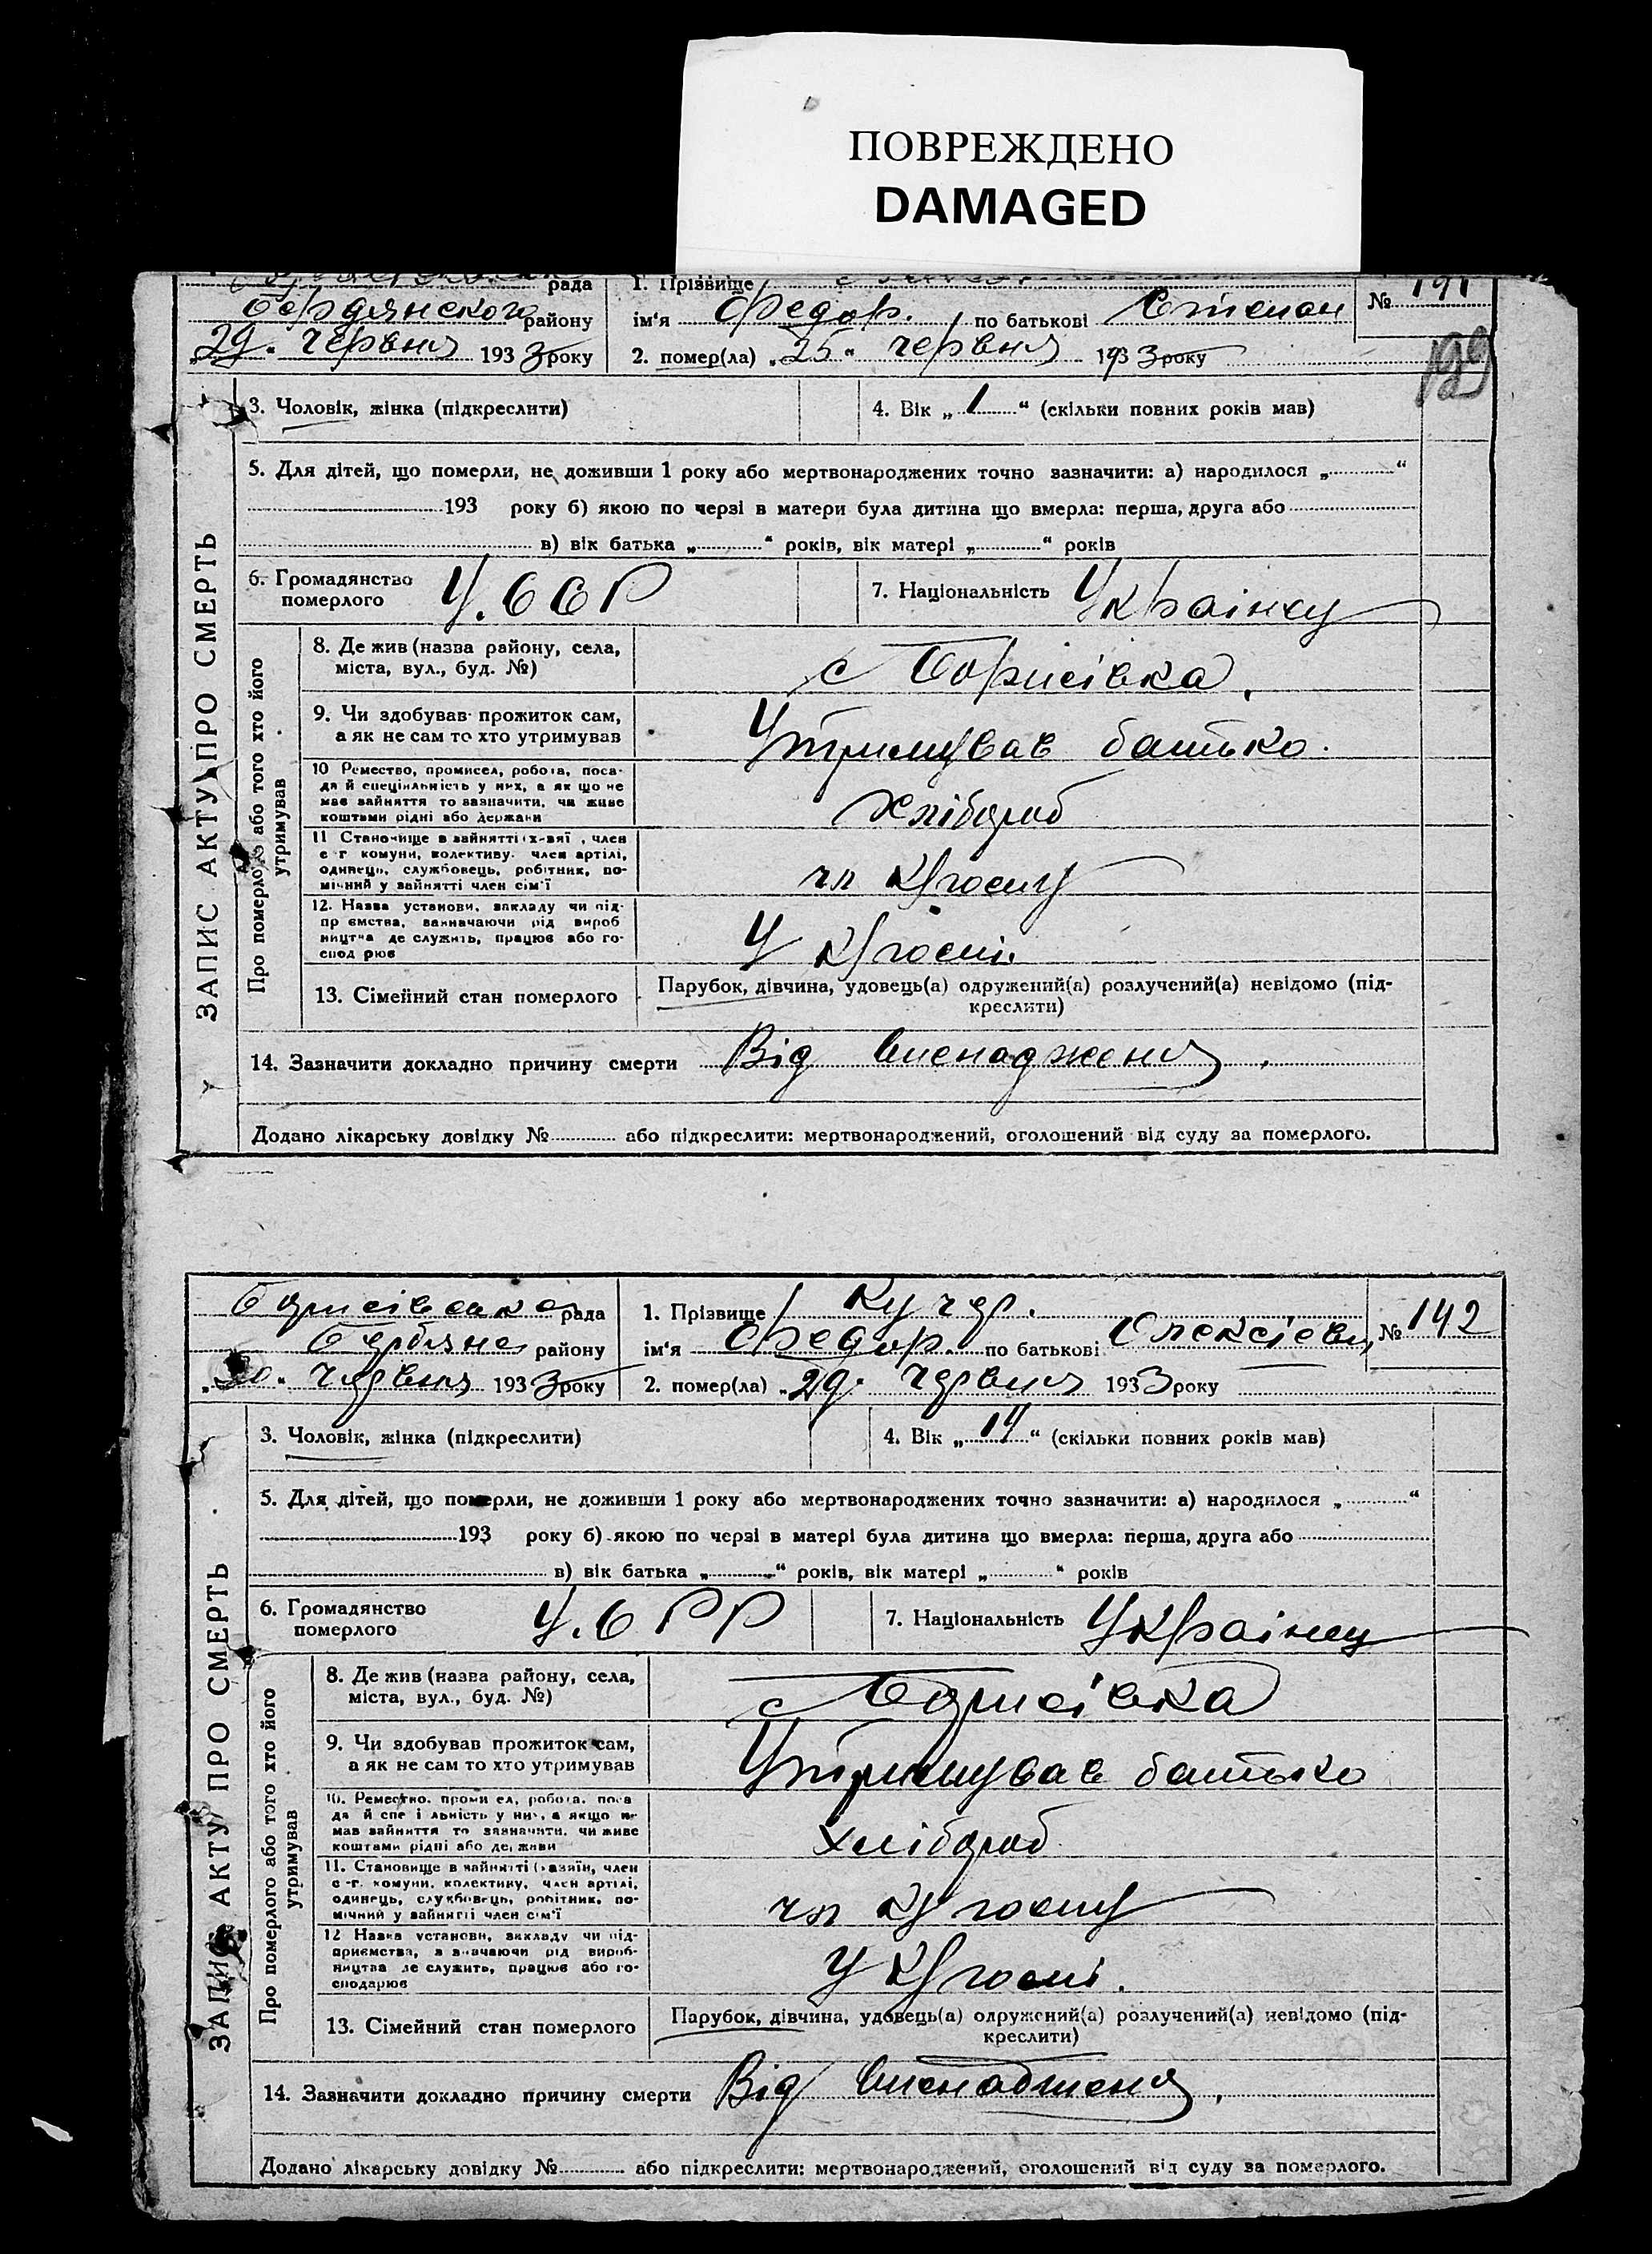 ПОВРЕЖДЕНО
DAMAGED
рада 1. Прізвище
Бердянского району ім'я Федор. по батькові Степан № 191
„29" червня 1933 року 2. помер(ла) „25" червня 1933 року
199
3. Чоловік, жінка (підкреслити) 4. Вік „1" (скільки повних років мав)
5. Для дітей, що померли, не доживши 1 року або мертвонароджених точно зазначити: а) народилося „ "
193 року б) якою по черзі в матери була дитина що вмерла: перша, друга або
в) вік батька „ " років, вік матері „ " років
6. Громадянство померлого У.ССР 7. Національність Украінец
8. Де жив (назва району, села, міста, вул., буд. №) с Борисівка.
9. Чи здобував прожиток сам, а як не сам то хто утримував Утримував батько.
10 Ремество, промисел, робота, посада й спеціяльність у них, а як що не має зайняття то зазначити, чи живе коштами рідні або держави Хлібороб
11 Становище в зайнятті х-вяї, член с-г комуни, колективу. член артілі, одинець, службовець, робітник, помічний у зайнятті член сім'ї чл К/госпу
12. Назва установи, закладу чи підпр ємства, зазначаючи рід вироб ництва де служить, працює або господ рює У К/госпі.
13. Сімейний стан померлого Парубок, дівчина, удовець(а) одружений(а) розлучений(а) невідомо (підкреслити)
14. Зазначити докладно причину смерти Від виснадженя.
Додано лікарську довідку № або підкреслити: мертвонароджений, оголошений від суду за померлого.
ЗАПИС АКТУ ПРО СМЕРТЬ
Про померлого або того хто його утримував
Борисівська рада 1. Прізвище Кучер. № 142
Бердянс району ім'я Федор. по батькові Олексієви
„30" Червня 1933 року 2. помер(ла) „29" Червня 1933 року
3. Чоловік, жінка (підкреслити) 4. Вік „14" (скільки повних років мав)
5. Для дітей, що померли, не доживши 1 року або мертвонароджених точно зазначити: а) народилося „ "
193 року б) якою по черзі в матері була дитина що вмерла: перша, друга або
в) вік батька „ " років, вік матері „ " років
6. Громадянство померлого У.СРР 7. Національність Украінец
8. Де жив (назва району, села, міста, вул., буд. №) с Борисівка
9. Чи здобував прожиток сам, а як не сам то хто утримував Утримував батько
10. Ремество, проми ел, робота, поса да й спе і льність у них, а якщо не мав зайняття то зазначити, чи живе коштами рідні або держави хлібороб
11. Становище в зайнятті (хазяїн, член с-г. комуни, колективу, член артілі, одинець, службовець, робітник, помічний у зайнятті член сім'ї чл К/госпу
12 Назва установи, закладу чи підприємства, зазначаючи рід виробництва де служить, працює або господарює У К/госпі.
13. Сімейний стан померлого Парубок, дівчина, удовець(а) одружений(а) розлучений(а) невідомо (підкреслити)
14. Зазначити докладно причину смерти Від виснадженя.
Додано лікарську довідку № або підкреслити: мертвонароджений, оголошений від суду за померлого.
ЗАПИС АКТУ ПРО СМЕРТЬ
Про померлого або того хто його утримував